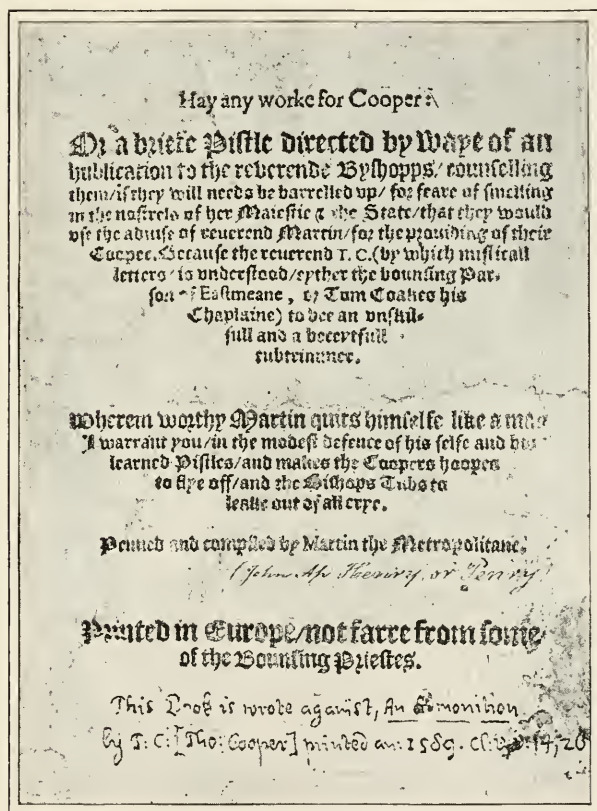 Hay any worke for Cooper:
Or a briefe Pistle directed by Waye of an
hublication to the reverende Byshopps/ counselling
them/if they will needs be barrelled up/ for feare of smelling
in the nostrels of her Maiestie & the State/that they would
vse the aduise of reuerend Martin/for the prouiding of their
Cooper. Because the reuerend T. C. (by which misticall
letters is vnderstood/eyther the bounsing Par-
son of Eastmeane, or Tom Coakes his
Chaplaine) to bee an vnskil-
full and a beceytfull
tubtrimmer.
Wherein worthy Martin quits himselfe like a man
I warrant you/in the modest defence of his selfe and his
learned Pistles/and makes the Coopers hoopes
to flye off/and the Bishops Tubs to
leake out of all crye.
Penned and compiled by Martin the Metropolitane.
(John Ap Henry, or Penry
Printed in Europe/not farre from some
of the Bounsing Priestes.
This Book is wrote against, An Admonition
by T: C: [Tho: Cooper] printed an: 1589. 14, 20